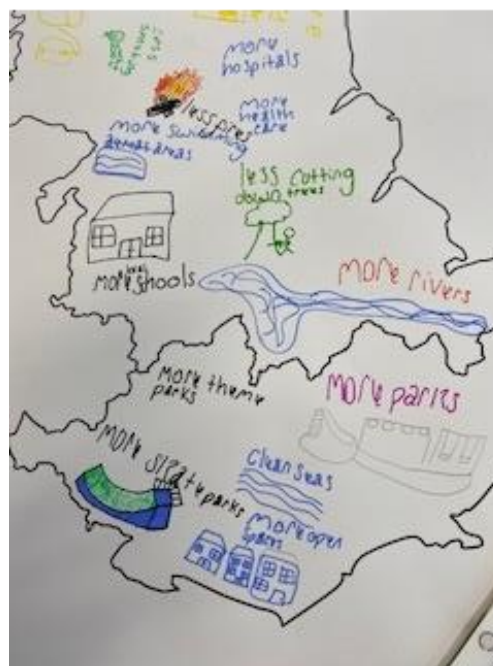 more
hospitals
less fires
more
health
care
more swimming
areas
less cutting
down trees
more shools
more rivers
more theme
parks
more parks
more skate parks
clean seas
more open